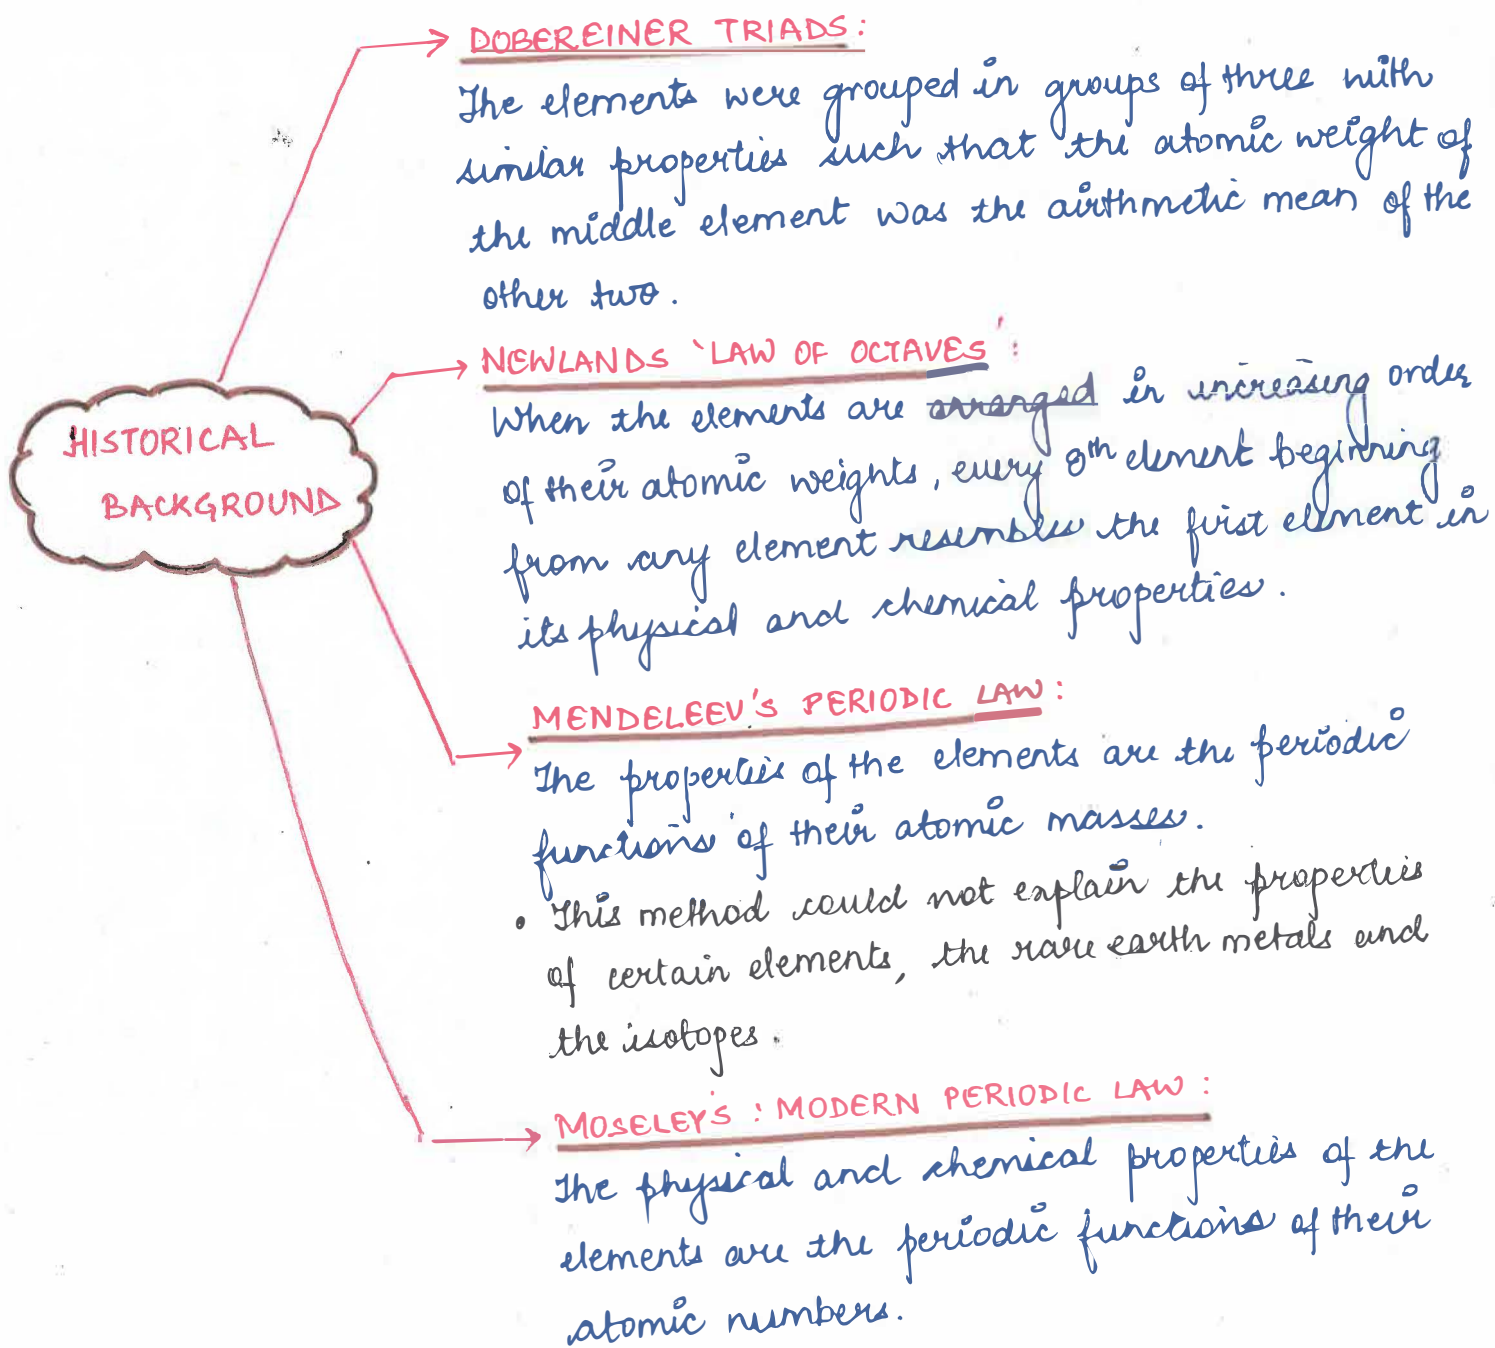 DOBEREINER TRIADS:
The elements were grouped in groups of three with
similar properties such that the atomic weight of
the middle element was the airthmetic mean of the
other two.
NEWLANDS 'LAW OF OCTAVES':
When the elements are arranged in increasing order
of their atomic weights, every 8th element beginning
from any element resembles the first element in
its physical and chemical properties.
HISTORICAL
BACKGROUND
MENDELEEV'S PERIODIC LAW:
The properties of the elements are the periodic
functions of their atomic masses.
• This method could not explain the properties
of certain elements, the rare earth metals and
the isotopes.
MOSELEY'S : MODERN PERIODIC LAW:
The physical and chemical properties of the
elements are the periodic functions of their
atomic numbers.